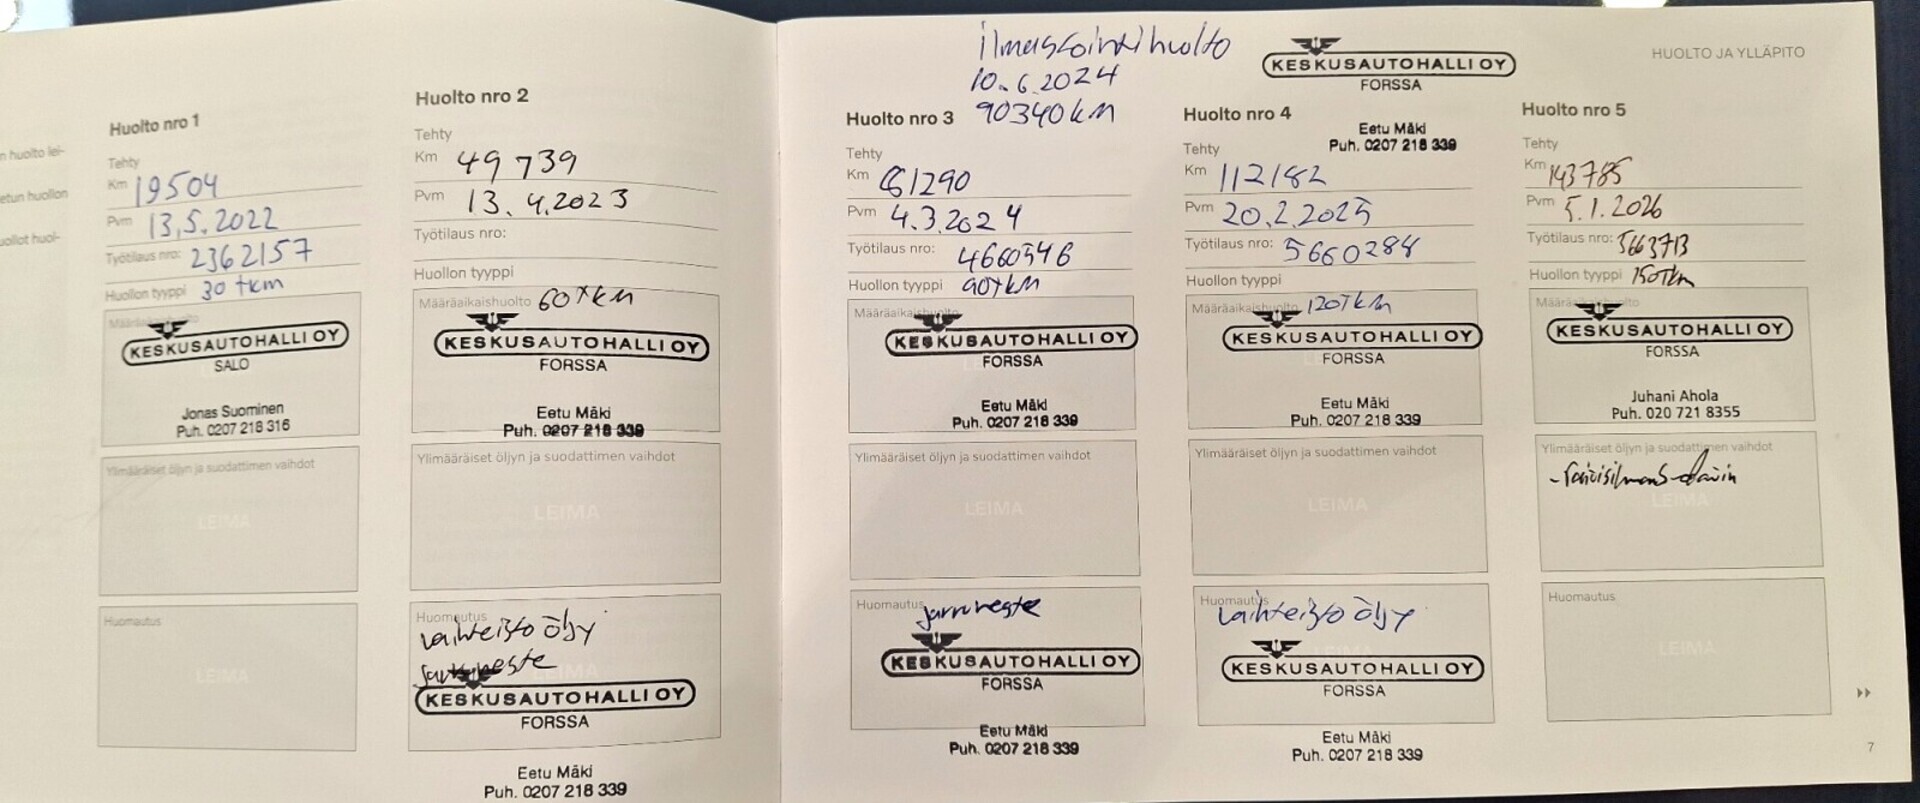 HUOLTO JA YLLÄPITO
n huolto lei-
etun huollon
uollot huol-
Huolto nro 1
Tehty
Km 19504
Pvm 13.5.2022
Työtilaus nro: 2362157
Huollon tyyppi 30 tkm
Määräaikaishuolto
KESKUSAUTOHALLI OY
SALO
Jonas Suominen
Puh. 0207 218 316
Ylimääräiset öljyn ja suodattimen vaihdot
LEIMA
Huomautus
LEIMA
Huolto nro 2
Tehty
Km 49 739
Pvm 13.4.2023
Työtilaus nro:
Huollon tyyppi
Määräaikaishuolto 60tkm
KESKUSAUTOHALLI OY
FORSSA
Eetu Mäki
Puh. 0207 218 339
Ylimääräiset öljyn ja suodattimen vaihdot
LEIMA
Huomautus
vaihteisto öljy
jarruneste
KESKUSAUTOHALLI OY
FORSSA
Eetu Mäki
Puh. 0207 218 339
ilmastointihuolto
10.6.2024
90340km
KESKUSAUTOHALLI OY
FORSSA
Eetu Mäki
Puh. 0207 218 339
Huolto nro 3
Tehty
Km 81290
Pvm 4.3.2024
Työtilaus nro: 4660546
Huollon tyyppi 90tkm
Määräaikaishuolto
KESKUSAUTOHALLI OY
FORSSA
Eetu Mäki
Puh. 0207 218 339
Ylimääräiset öljyn ja suodattimen vaihdot
LEIMA
Huomautus jarruneste
KESKUSAUTOHALLI OY
FORSSA
Eetu Mäki
Puh. 0207 218 339
Huolto nro 4
Tehty
Km 112182
Pvm 20.2.2025
Työtilaus nro: 5660284
Huollon tyyppi
Määräaikaishuolto 120tkm
KESKUSAUTOHALLI OY
FORSSA
Eetu Mäki
Puh. 0207 218 339
Ylimääräiset öljyn ja suodattimen vaihdot
LEIMA
Huomautus
vaihteisto öljy
KESKUSAUTOHALLI OY
FORSSA
Eetu Mäki
Puh. 0207 218 339
Huolto nro 5
Tehty
Km 143785
Pvm 5.1.2026
Työtilaus nro: 5663713
Huollon tyyppi 150Tkm
Määräaikaishuolto
KESKUSAUTOHALLI OY
FORSSA
Juhani Ahola
Puh. 020 721 8355
Ylimääräiset öljyn ja suodattimen vaihdot
LEIMA
Huomautus
LEIMA
7